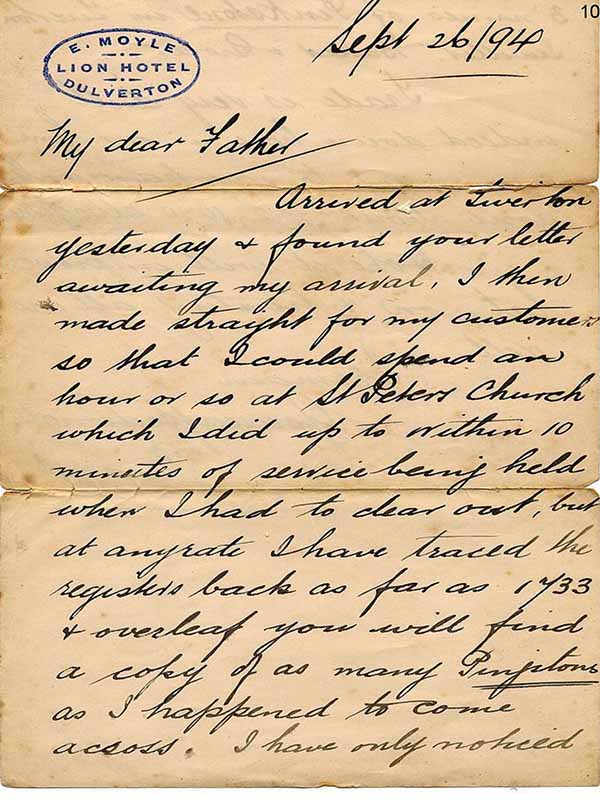 10
E. MOYLE
LION HOTEL
DULVERTON
Sept 26/94
My dear Father
Arrived at Tiverton
yesterday & found your letter
awaiting my arrival, I then
made straight for my customers
so that I could spend an
hour or so at St Peters Church
which I did up to within 10
minutes of service being held
when I had to clear out, but
at anyrate I have traced the
registers back as far as 1733
& overleaf you will find
a copy of as many Pingstons
as I happened to come
acsoss. I have only noticed